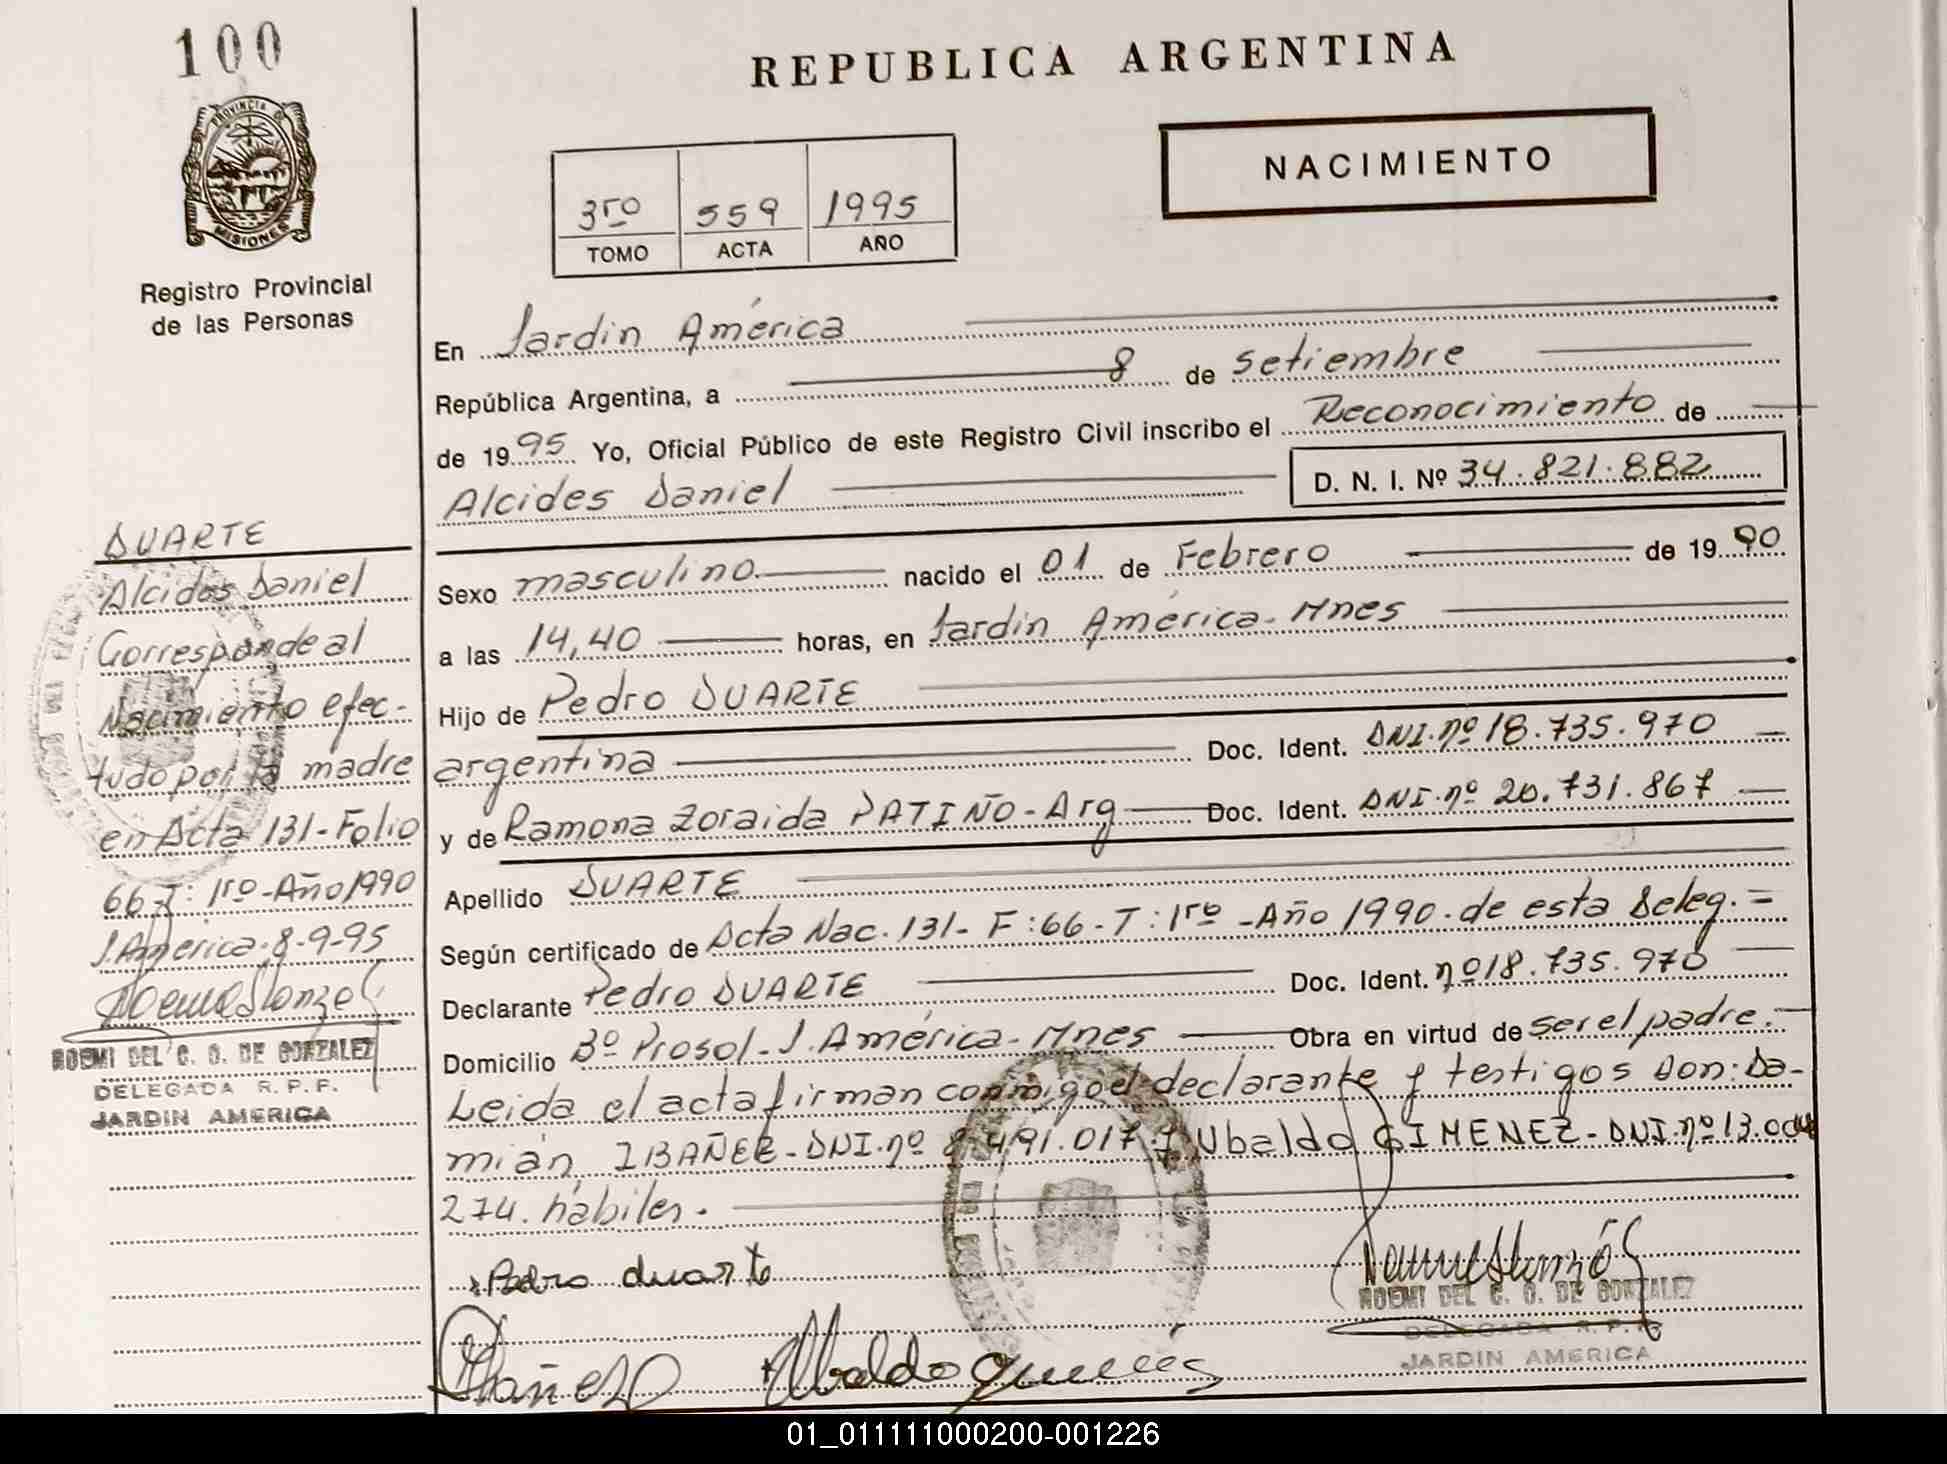 100
REPUBLICA ARGENTINA
PROVINCIA DE
MISIONES
Registro Provincial
de las Personas
NACIMIENTO
3ro 559 1995
TOMO ACTA AÑO
En Jardín América
República Argentina, a 8 de setiembre
de 1995 Yo, Oficial Público de este Registro Civil inscribo el Reconocimiento de
Alcides Daniel D. N. I. Nº 34.821.882
Sexo masculino nacido el 01 de Febrero de 1990
a las 14,40 horas, en Jardín América - Mnes
Hijo de Pedro DUARTE
argentina Doc. Ident. DNI. nº 18.735.970
y de Ramona Zoraida PATIÑO - Arg Doc. Ident. DNI. nº 20.731.867
Apellido DUARTE
Según certificado de Acta Nac. 131 - F: 66 - T: 1ro - Año 1990 - de esta Deleg. =
Declarante Pedro DUARTE Doc. Ident. nº 18.735.970
Domicilio Bº Prosol - J. América - Mnes Obra en virtud de ser el padre. -
Leida el acta firman conmigo el declarante y testigos Don: Da-
mián IBAÑEZ - DNI. nº 8.491.017 y Ubaldo GIMENEZ - DNI. nº 13.004
274. hábiles.
Pedro duarte
NOEMI DEL C. O. DE GONZALEZ
DELEGADA R. P. P.
JARDIN AMERICA
Ibañez Ubaldo
DUARTE
Alcides Daniel
Corresponde al
Nacimiento efec-
tudo por la madre
en Acta 131 - Folio
66 - T: 1ro - Año 1990
J. América - 8-9-95
NOEMI DEL C. O. DE GONZALEZ
DELEGADA R. P. P.
JARDIN AMERICA
01_011111000200-001226